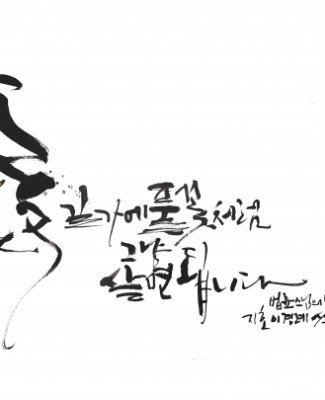 길가에 풀처럼
그냥
살면 됩니다
법륜스님의
지호 이경례